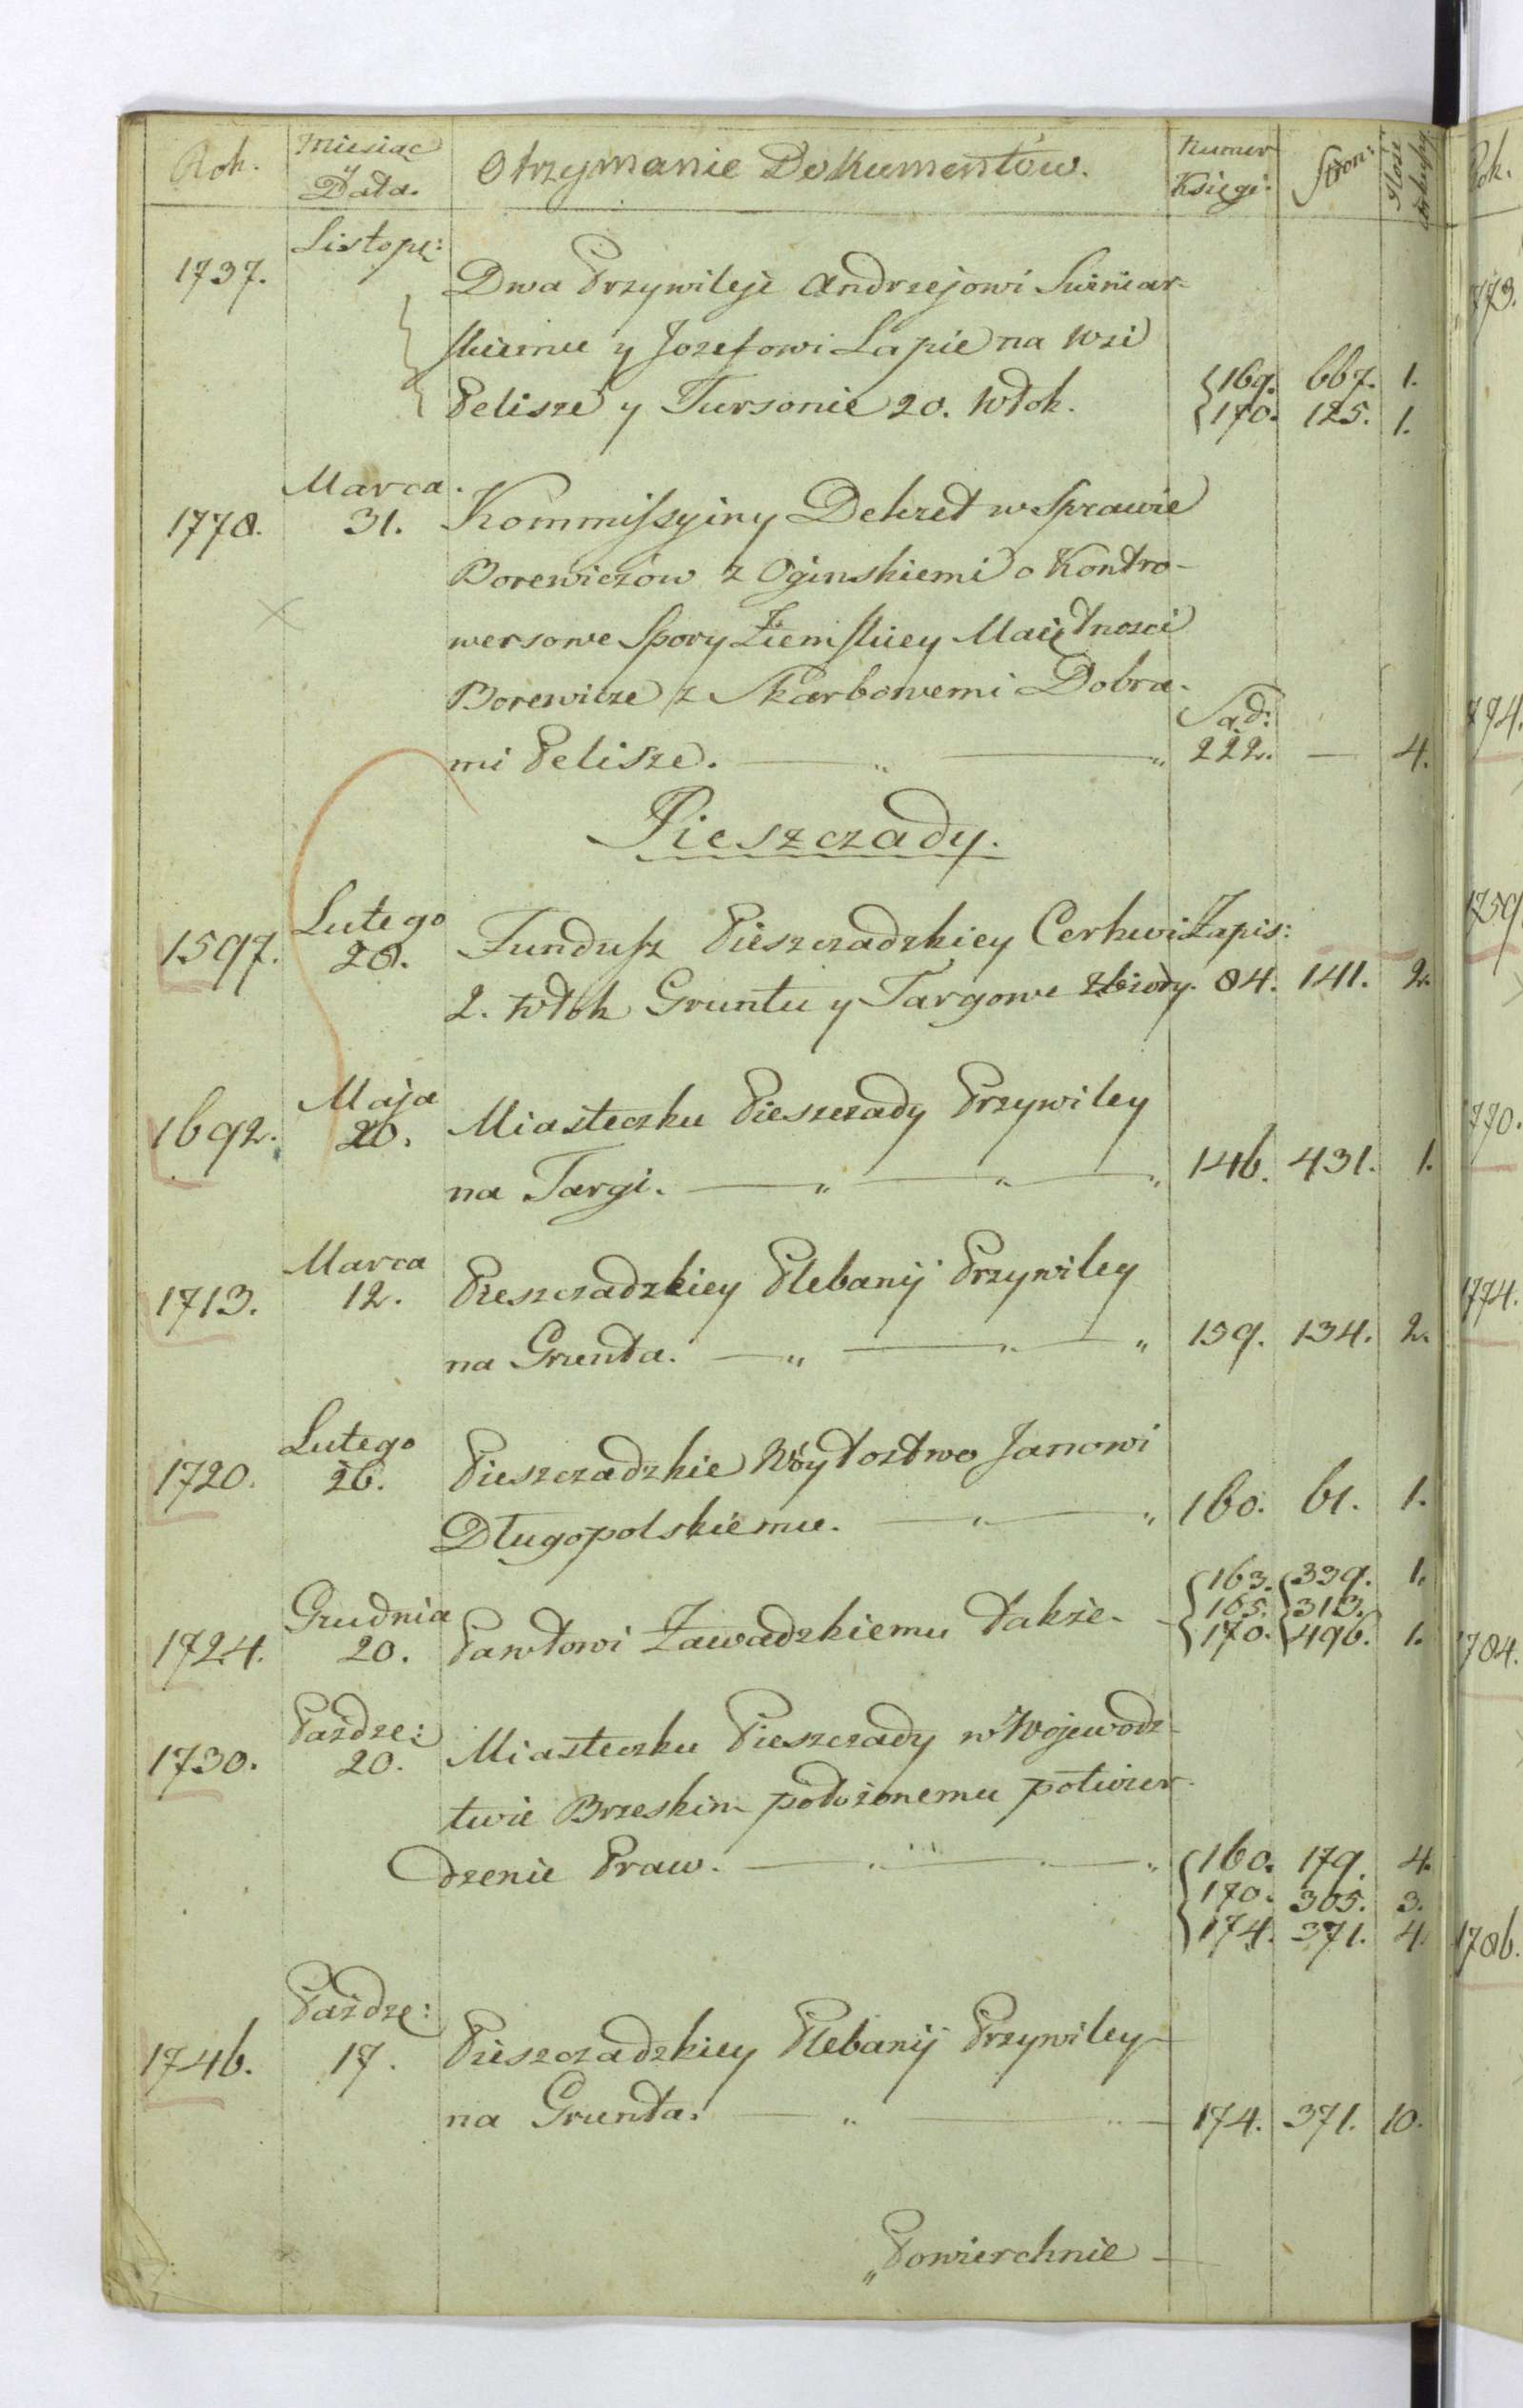 Rok. Miesiąc y Data. Otrzymanie Dokumentow. Numer Księgi: Stron: Ilość
1737. Listopę: Dwa Przywileje Andrzejowi Swiniar-
skiemu y Jozefowi Lapie na Wsi
Pelisze y Tursonie 20. Włok. 169. 667. 1.
170. 125. 1.
1778. Marca 31. Kommissyiny Dekret w Sprawie
Borewiczow z Oginskiemi o Kontro-
wersowe Spory Ziemskiey Maiętnosci
Borewicze z Skarbowemi Dobra-
Sąd:
mi Pelisze. 222. — 4.
Pieszczady.
1597. Lutego 28. Fundusz Pieszczadzkiey Cerkwi Zapis:
2. Włok Gruntu y Targowe Zbiory. 84. 141. 2.
1692. Maja 20. Miasteczku Pieszczady Przywiley
na Targi. 146. 431. 1.
1713. Marca 12. Pieszczadzkiey Plebanij Przywiley
na Grunta. 159. 134. 2.
1720. Lutego 26. Pieszczadzkie Wóytostwo Janowi
Długopolskiemu. 160. 61. 1.
163. 339. 1.
165. 313.
1724. Grudnia 20. Pawłowi Zawadzkiemu także. 170. 496. 1.
1730. Paździe: 20. Miasteczku Pieszczady w Wojewodz-
twie Brzeskim położonemu potwier-
dzenie Praw. 160. 179. 4.
170. 305. 3.
174. 371. 4.
1746. Paździe: 17. Pieszczadzkiey Plebanij Przywiley
na Grunta. 174. 371. 10.
Powierchnie